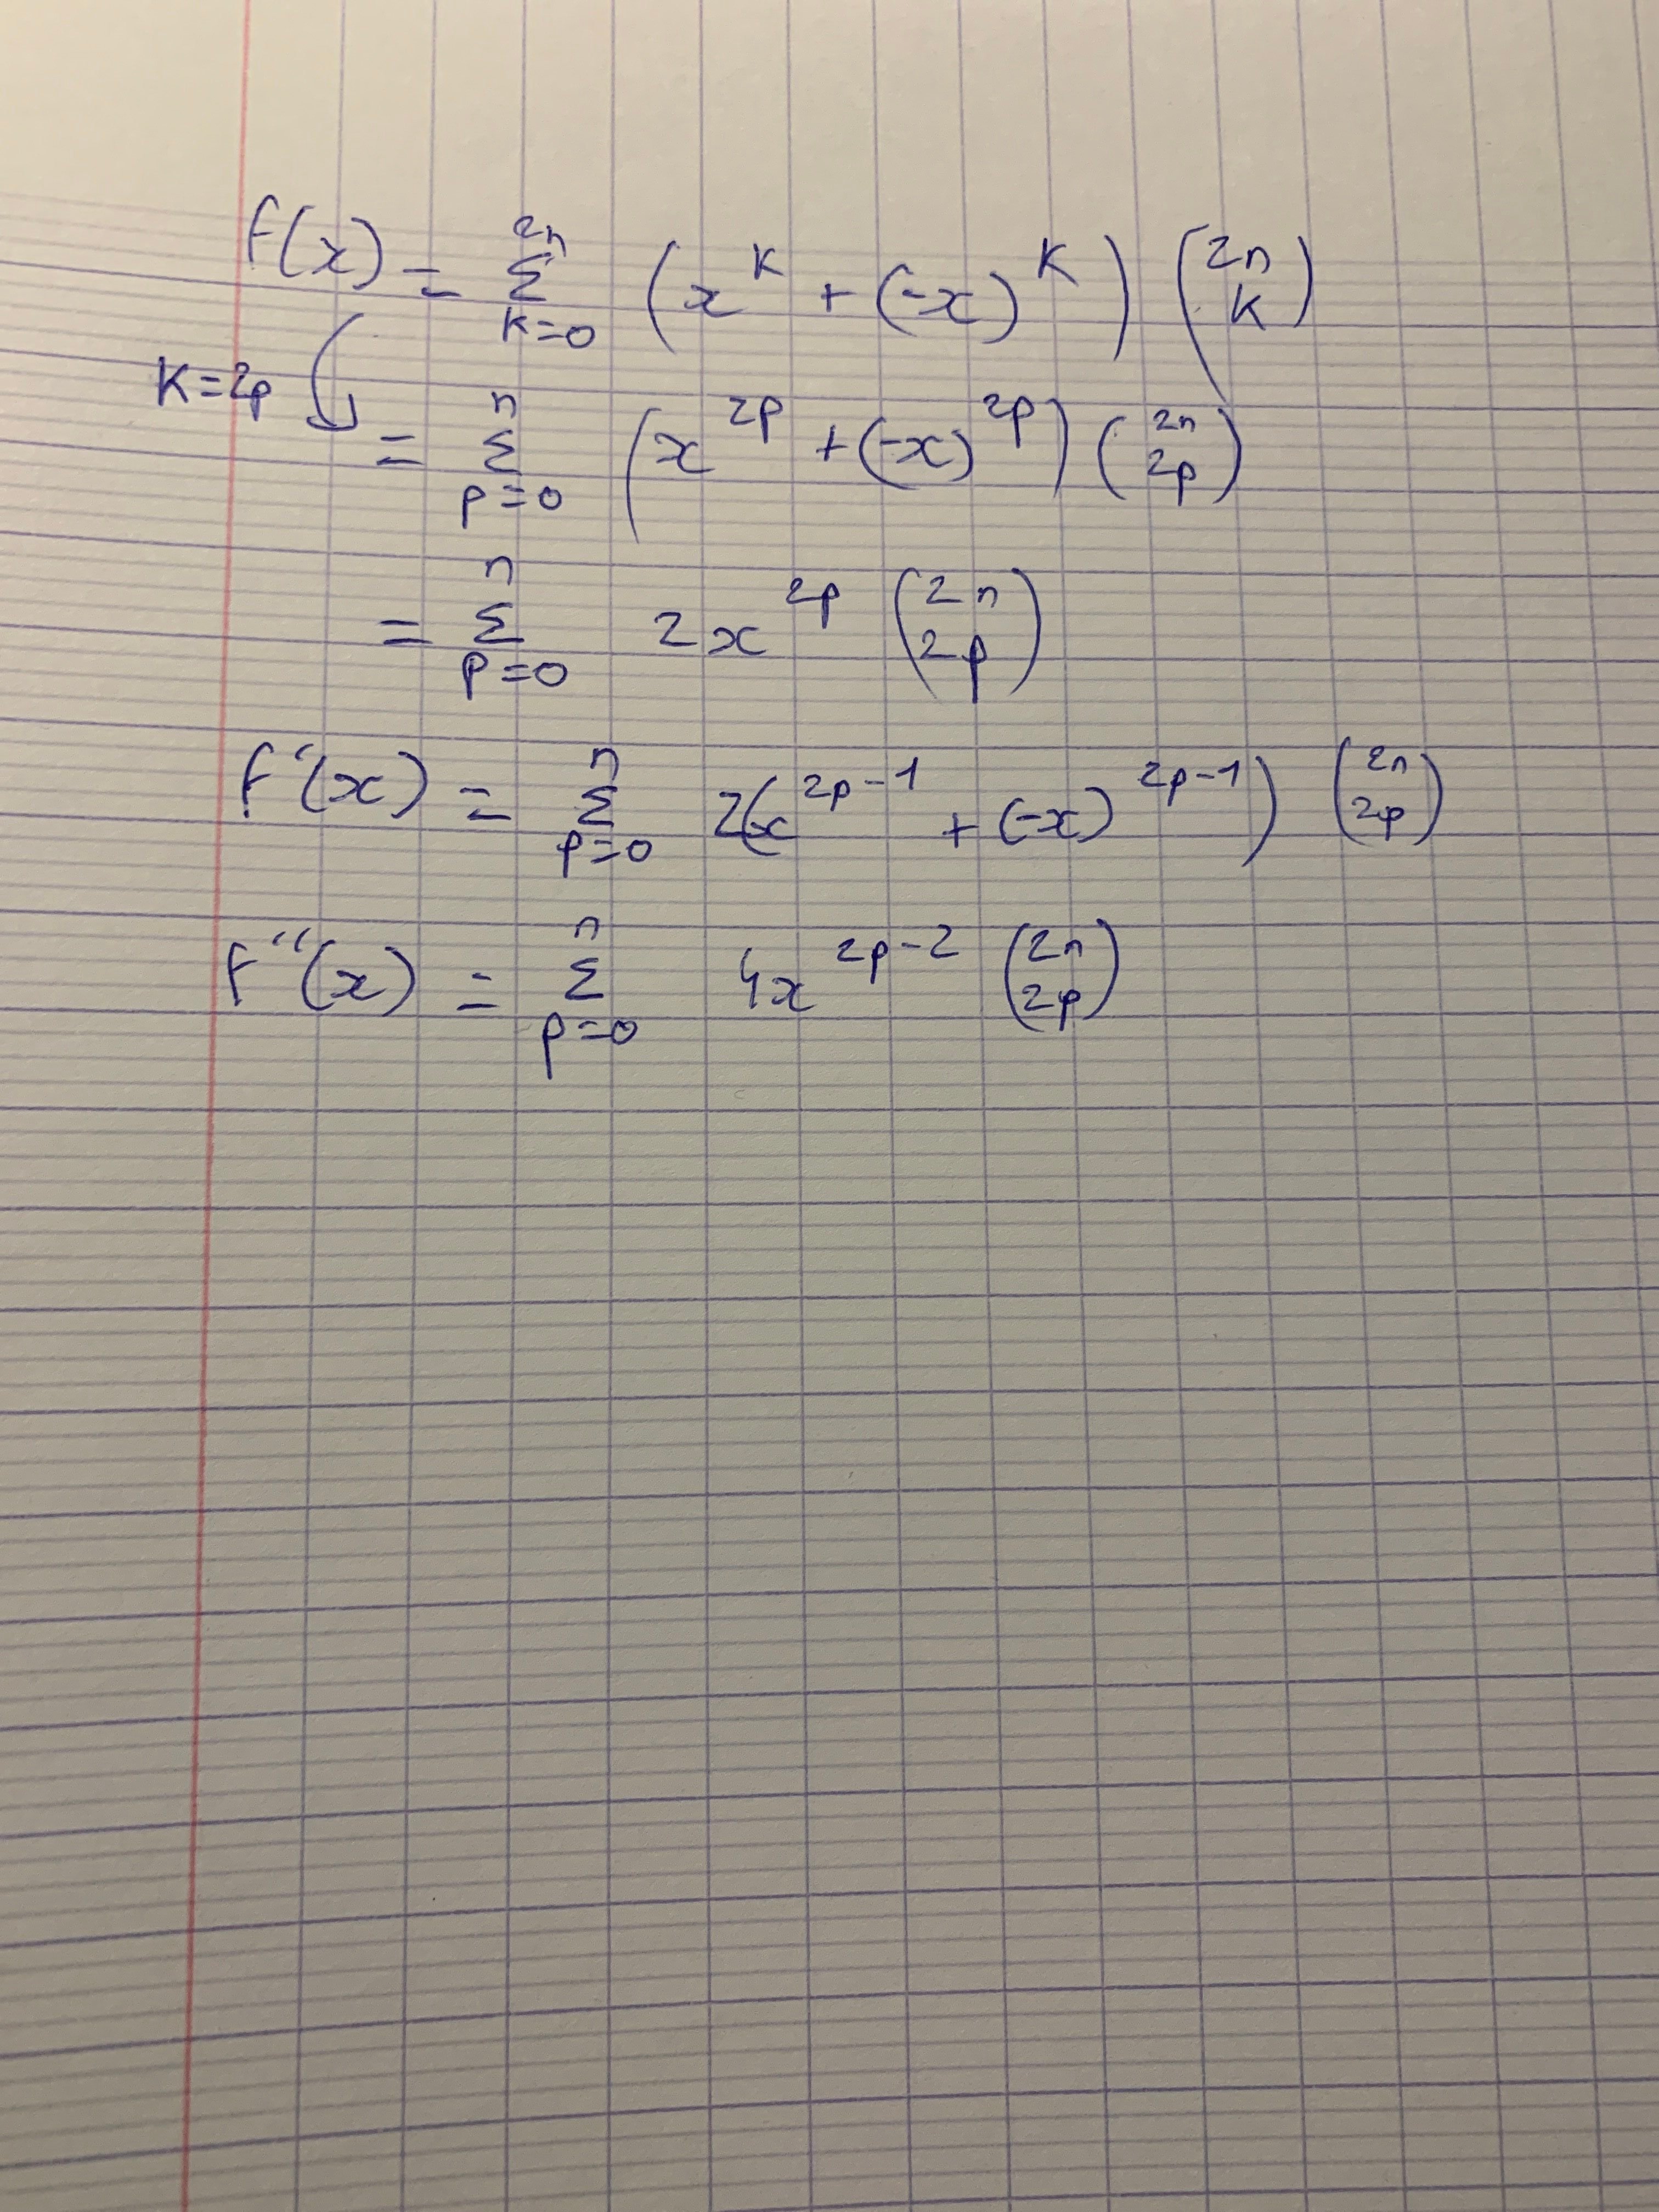 f(x) = Σ_{k=0}^{2n} (x^k + (-x)^k) \binom{2n}{k}
K=2p
= Σ_{p=0}^{n} (x^{2p} + (-x)^{2p}) \binom{2n}{2p}
= Σ_{p=0}^{n} 2x^{2p} \binom{2n}{2p}
f'(x) = Σ_{p=0}^{n} 2(x^{2p-1} + (-x)^{2p-1}) \binom{2n}{2p}
f''(x) = Σ_{p=0}^{n} 4x^{2p-2} \binom{2n}{2p}